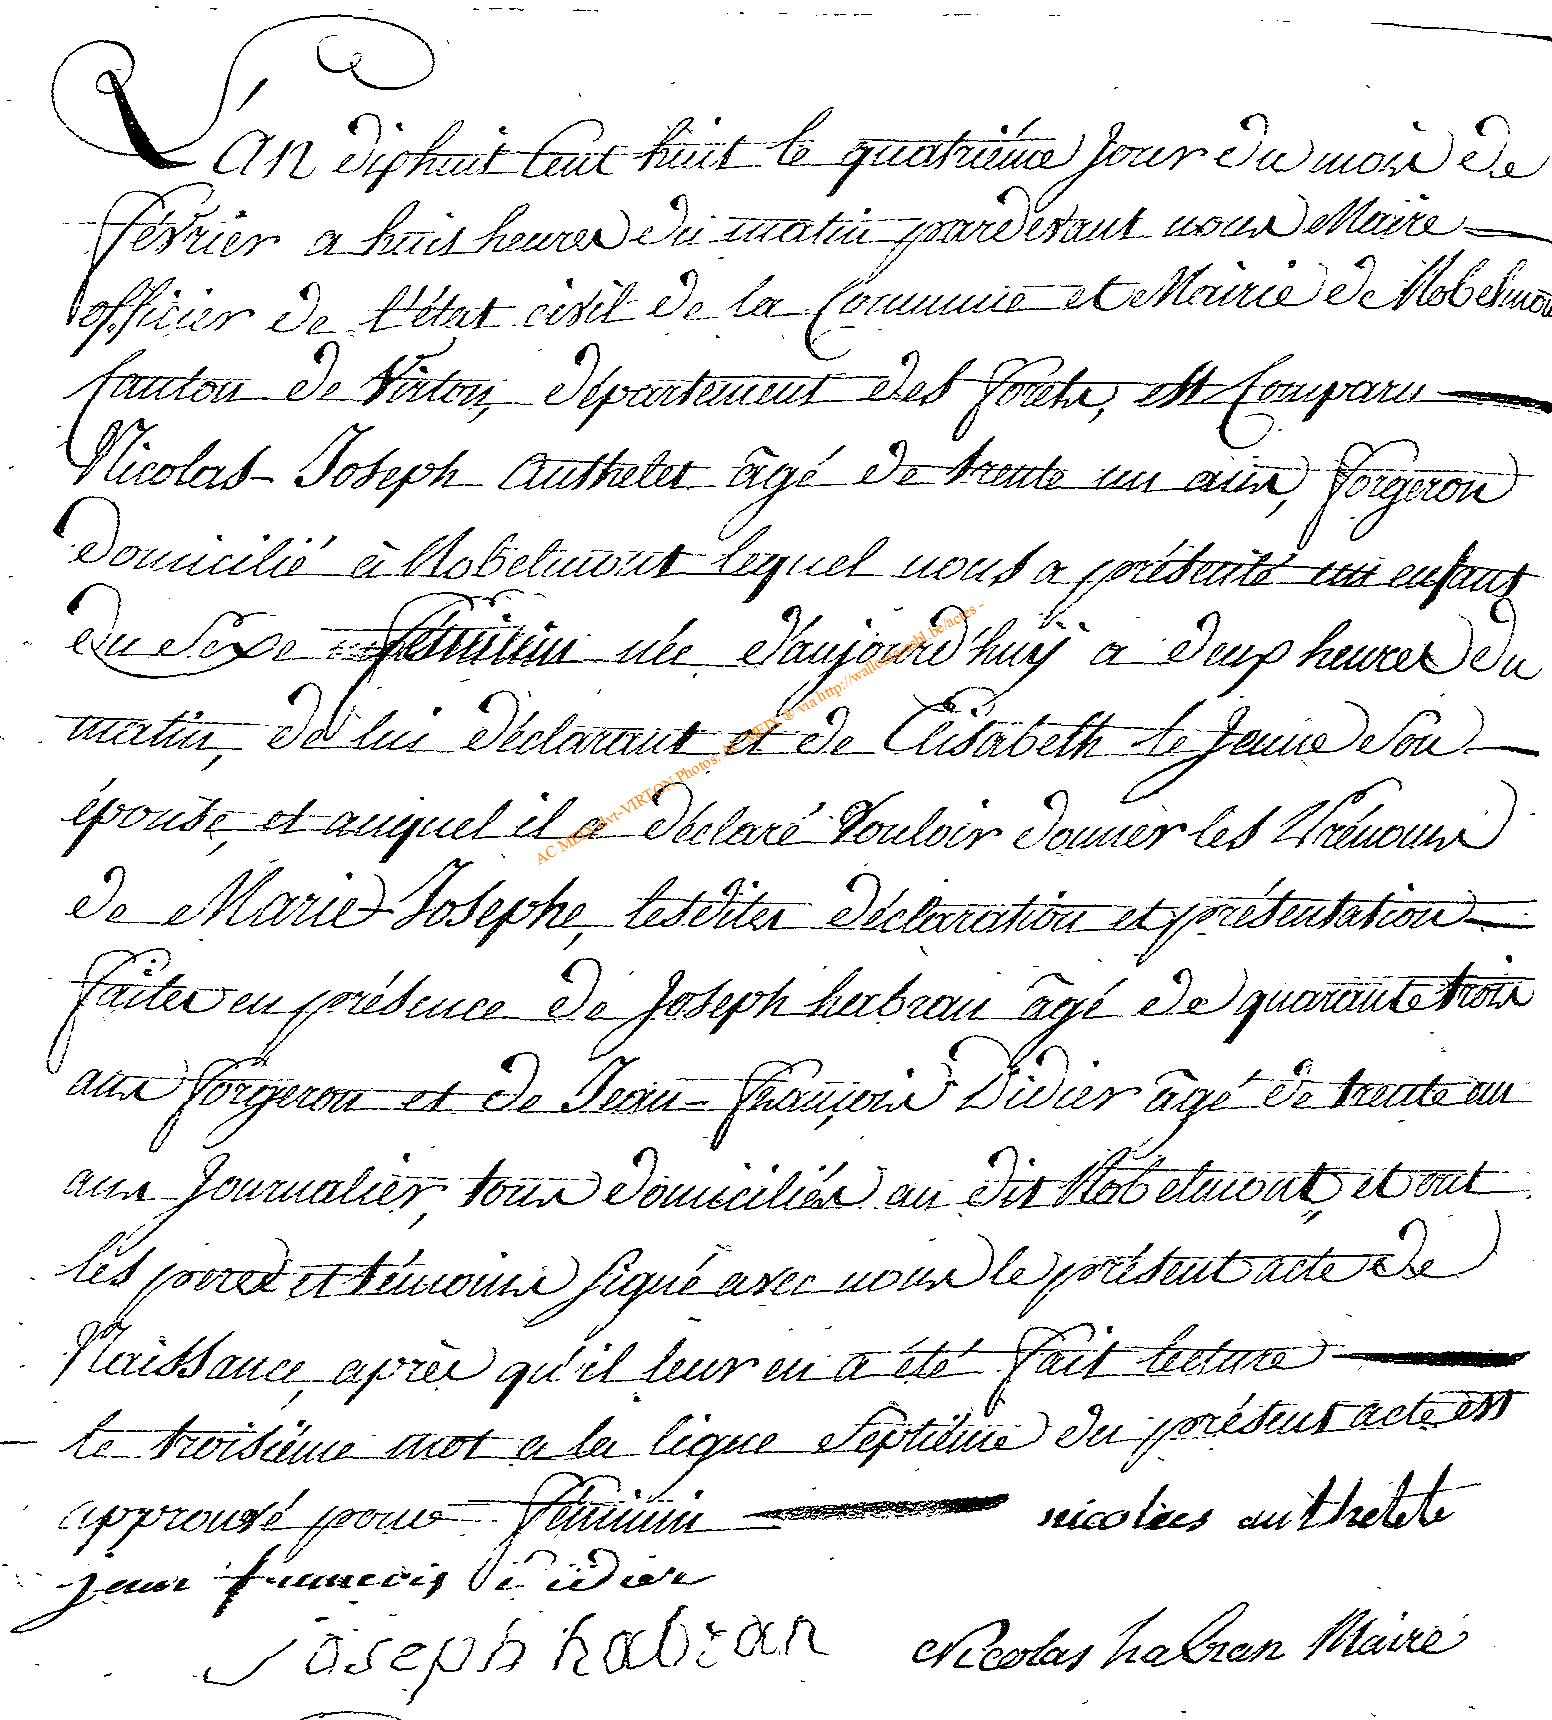 L'an dixhuit cent huit le quatriéme Jour du mois de
février a huit heures du matin pardevant nous Maire
officier de l'état civil de la Commune et Mairie de Robelmont
Canton de Virton, département des forets, est Comparu
Nicolas-Joseph Authelet âgé de trente un ans, forgeron
domicilié à Robelmont lequel nous a présenté un enfant
du Sexe féminin née d'aujourd'huÿ a deux heures du
matin, de lui déclarant et de Elisabeth le Jeune Son
épouse, et auquel il a déclaré Vouloir donner les Prénoms
de Marie-Josephe, lesdites déclaration et présentation
faites en présence de Joseph habran âgé de quarante trois
ans forgeron et de Jean-François Didier âgé de trente un
ans Journalier, tous domiciliés au dit Robelmont, et ont
les peres et témoins signé avec nous le présent acte de
Naissance, après qu'il leur en a été fait lecture
le troisiéme mot a la ligne Septiéme du présent acte est
approuvé pour féminin nicolas authelete
jean francois didier
Joseph habran Nicolas habran Maire
AC MEIX-dvt-VIRTON Photos: via http://wallonia.asbl.be/actes -